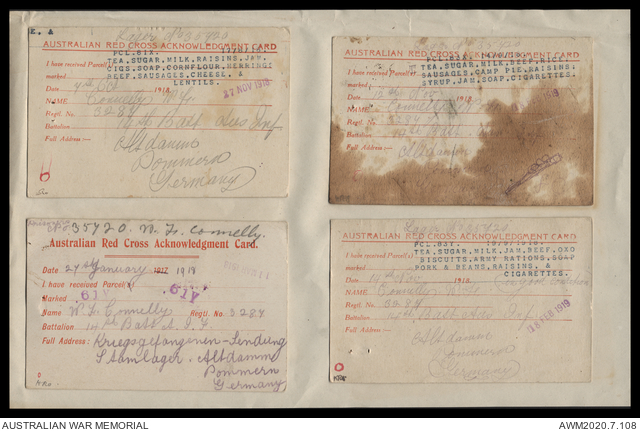 E. A
Lager No 35720
AUSTRALIAN RED CROSS ACKNOWLEDGMENT CARD
PCL.61X.
TEA,SUGAR,MILK,RAISINS,JAM.
I have received Parcel(s)
CIGS.SOAP,CORNFLOUR,HERRINGS
marked
BEEF,SAUSAGES,CHEESE,&
LENTILS.
Date 7th Oct 1918.
27 NOV 1918
NAME Connelly W.F.
Regtl. No. 3284
Battalion 14th Batt Aus Inf
Full Address :— Altdamm
Pommern
Germany
AUSTRALIAN RED CROSS ACKNOWLEDGMENT CARD
TEA,SUGAR,MILK,BEEF,RICE.
I have received Parcel(s)
SAUSAGES,CAMP PIE,RAISINS.
marked
SYRUP,JAM,SOAP,CIGARETTES.
Date 1918.
1919
NAME Connelly
Regtl. No. 3284
Battalion 14th Batt
Full Address :— Altdamm
Germany
35720. W. F. Connelly.
Australian Red Cross Acknowledgment Card.
Date 27st January 1917 1918
I have received Parcel
Marked 61V 61V.
Name W. F. Connelly Regtl. No. 3284
Battalion 14th Batt A. I. F
Full Address: Kriegsgefangenen-Sendung
Stamlager. Altdamm
Pommern
Germany
Lager No 35720
AUSTRALIAN RED CROSS ACKNOWLEDGMENT CARD
PCL.63Y.
TEA,SUGAR,MILK,JAM,BEEF,OXO
I have received Parcel(s)
BISCUITS,ARMY RATIONS,SOAP
marked
PORK & BEANS,RAISINS,&
CIGARETTES.
Date 14th Nov 1918.
NAME Connelly W.F.
Regtl. No. 3284
Battalion 14th Batt Aus Inf
FEB 1919
Full Address :— Altdamm
Pommern
Germany
AUSTRALIAN WAR MEMORIAL
AWM2020.7.108